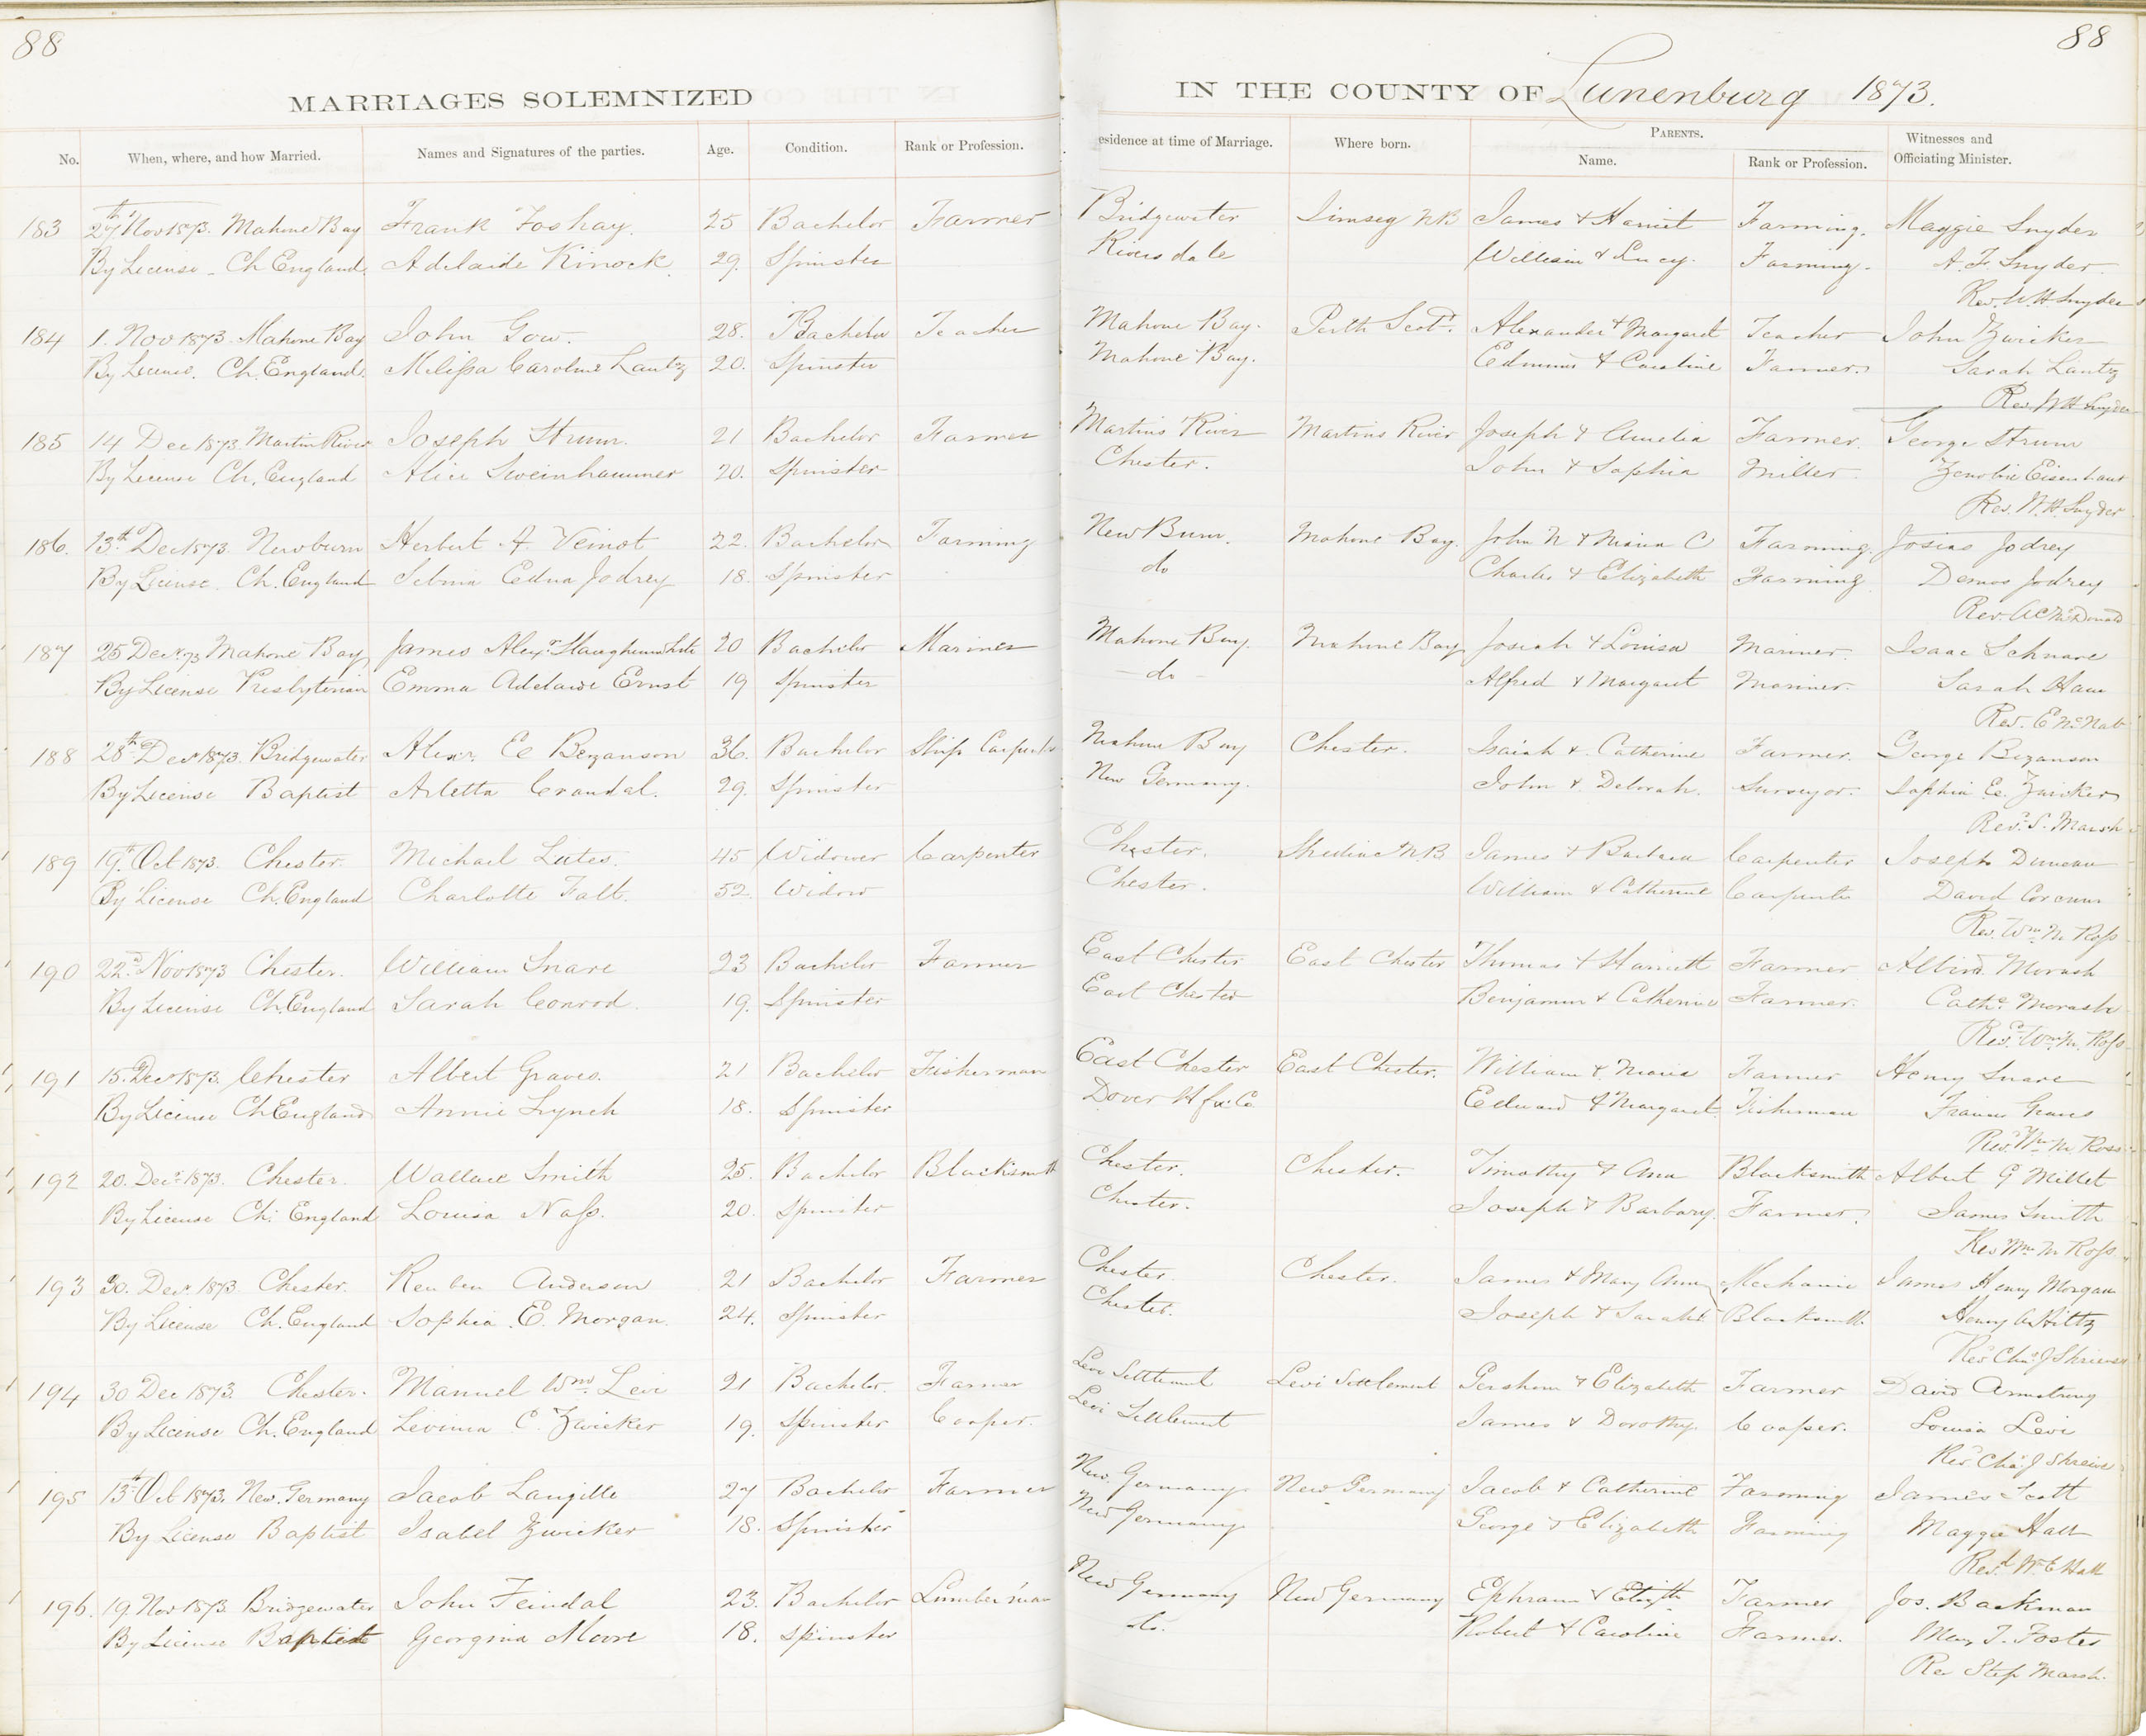 88
88
MARRIAGES SOLEMNIZED
IN THE COUNTY OF Lunenburg 1873.
No. When, where, and how Married. Names and Signatures of the parties. Age. Condition. Rank or Profession. esidence at time of Marriage. Where born. PARENTS. Name. Rank or Profession. Witnesses and Officiating Minister.
183 27th Nov 1873. Mahone Bay Frank Foshay. 25 Bachelor Farmer Bridgewater NB James & Harriet Farming. Maggie Snyder
By License - Ch England. Adelaide Kinock. 29. Spinster Riversdale William & Lucy. Farming. A. F. Snyder.
Rev. W. H Snyder
184 1. Nov 1873. Mahone Bay John Gow. 28. Bachelor Teacher Mahone Bay. Perth Scotd. Alexander & Margaret Teacher John Zwicker
By License. Ch. England. Melissa Caroline Lantz 20. Spinster Mahone Bay. & Caroline Farmer. Sarah Lantz
Rev. W H Snyder
185 14 Dec 1873. Martin River Joseph Strum. 21 Bachelor Farmer Martins River Martins River Joseph & Amelia Farmer. George Strum
By License Ch. England Alice Sweinhammer 20. Spinster Chester. John & Sophia Miller Zenobie Eisenhaur
Rev. W. H. Snyder
186. 13th Dec 1873. Newburn Herbert A. Veinot 22. Bachelor Farming New Burn. Mahone Bay. John N & Maria C Farming. Josias Jodrey
By License. Ch. England Selmia Edna Jodrey 18. Spinster do Charles & Elizabeth Farming Demos Jodrey
Rev. A C McDonald
187 25 Decr. 73 Mahone Bay James Alexr. Slaughenwhite 20 Bachelor Mariner Mahone Bay. Mahone Bay Josiah & Louisa Mariner. Isaac Schnare
By License Presbyterian Emma Adelaide Ernst 19 Spinster do Alfred & Margaret Mariner. Sarah Ham
Rev. E McNab
188 28th Decr 1873. Bridgewater Alexr. E Bezanson 36. Bachelor Ship Carpenter Mahone Bay Chester. Isaiah & Catherine Farmer. George Bezanson
By License Baptist Arletta Crandal. 29. Spinster New Germany. John & Deborah. Surveyor. Sophia E. Zwicker
Revd. S. Marsh
189 19th Oct 1873. Chester. Michael Lutes. 45 Widower Carpenter Chester. Shediac NB James & Barbara Carpenter Joseph Duncan
By License Ch. England Charlotte Falt. 52. Widow Chester. William & Catherine Carpenter David Corcum
Rev. Wm. M. Ross
190 22d. Nov 1873 Chester. William Snare 23 Bachelor Farmer East Chester East Chester Thomas & Harriett Farmer Morash
By License Ch. England Sarah Conrod. 19. Spinster East Chester Benjamin & Catherine Farmer. Cathe. Morash
Revd. Wm. M. Ross
191 15. Decr 1873. Chester Albert Graves. 21 Bachelor Fisherman East Chester East Chester. William & Maria Farmer Henry Snare
By License Ch England Annie Lynch 18. Spinster Dover Hfx Co Edward & Margaret Fisherman Graves
Revd. Wm. M Ross
192 20. Decr. 1873. Chester. Wallace Smith 25. Bachelor Blacksmith Chester. Chester. Timothy & Ann Blacksmith Albert G Millet
By License Ch. England Louisa Nass. 20. Spinster Chester. Joseph & Barbary. Farmer. James Smith
Rev Wm M Ross
193 30. Decr. 1873 Chester. Reuben Anderson 21 Bachelor Farmer Chester. Chester. James & Mary Ann Mechanic James Henry Morgan
By License Ch. England Sophia E. Morgan. 24. Spinster Chester. Joseph & Sarah Blacksmith. Henry A Hiltz
Rev Chas. J Shrieve
194 30 Dec 1873. Chester. Manuel Wm. Levi 21 Bachelor. Farmer Levi Settlement Levi Settlement Gershom & Elizabeth Farmer David Armstrong
By License Ch. England Levinia C. Zwicker 19. Spinster Cooper. Levi Settlement James & Dorothy. Cooper. Louisa Levi
Rev Chas. J Shrieve
195 13th Oct 1873. New. Germany Jacob Langille 27 Bachelor Farmer New. Germany New Germany Jacob & Catherine Farming James Scott
By License Baptist Isabel Zwicker 18. Spinster New Germany George & Elizabeth Farming Maggie Hall
Revd. W. E Hall
196. 19 Nov 1873 Bridgewater John Feindal 23. Bachelor Lumberman New Germany New Germany Ephraim & Elizth Farmer Jos. Backman
By License Baptist Georgina Moore 18. Spinster do. Robert & Caroline Farmer. Mary T. Foster
Rev Step Marsh.